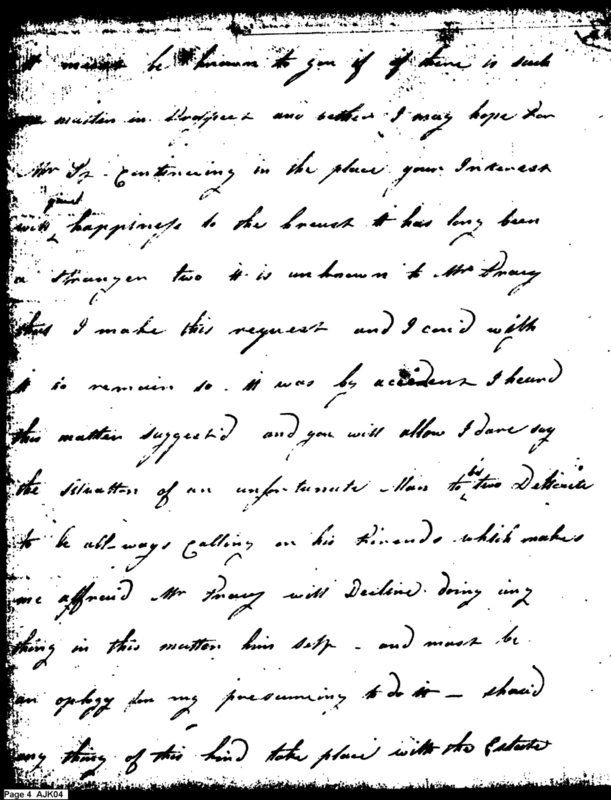 it must be known to you if of there is such
a matter in Prospect and wether I may hope for
Mr Ts. Continuing in the place your Interest
will give happiness to the breast it has long been
a stranger two it is unknown to Mr Tracy
that I make this request and I cou'd wish
it to remain so. it was by accident I heard
this matter suggested and you will allow I dare say
the situation of an unfortunate Man to be two Delicate
to be all-ways Calling on his Friends which makes
me affraid Mr Tracy will Decline doing any
thing in this matter him self - and must be
an oplogy for my presumeing to do it - shou'd
any thing of this kind take place with the Estate
Page 4 AJK04